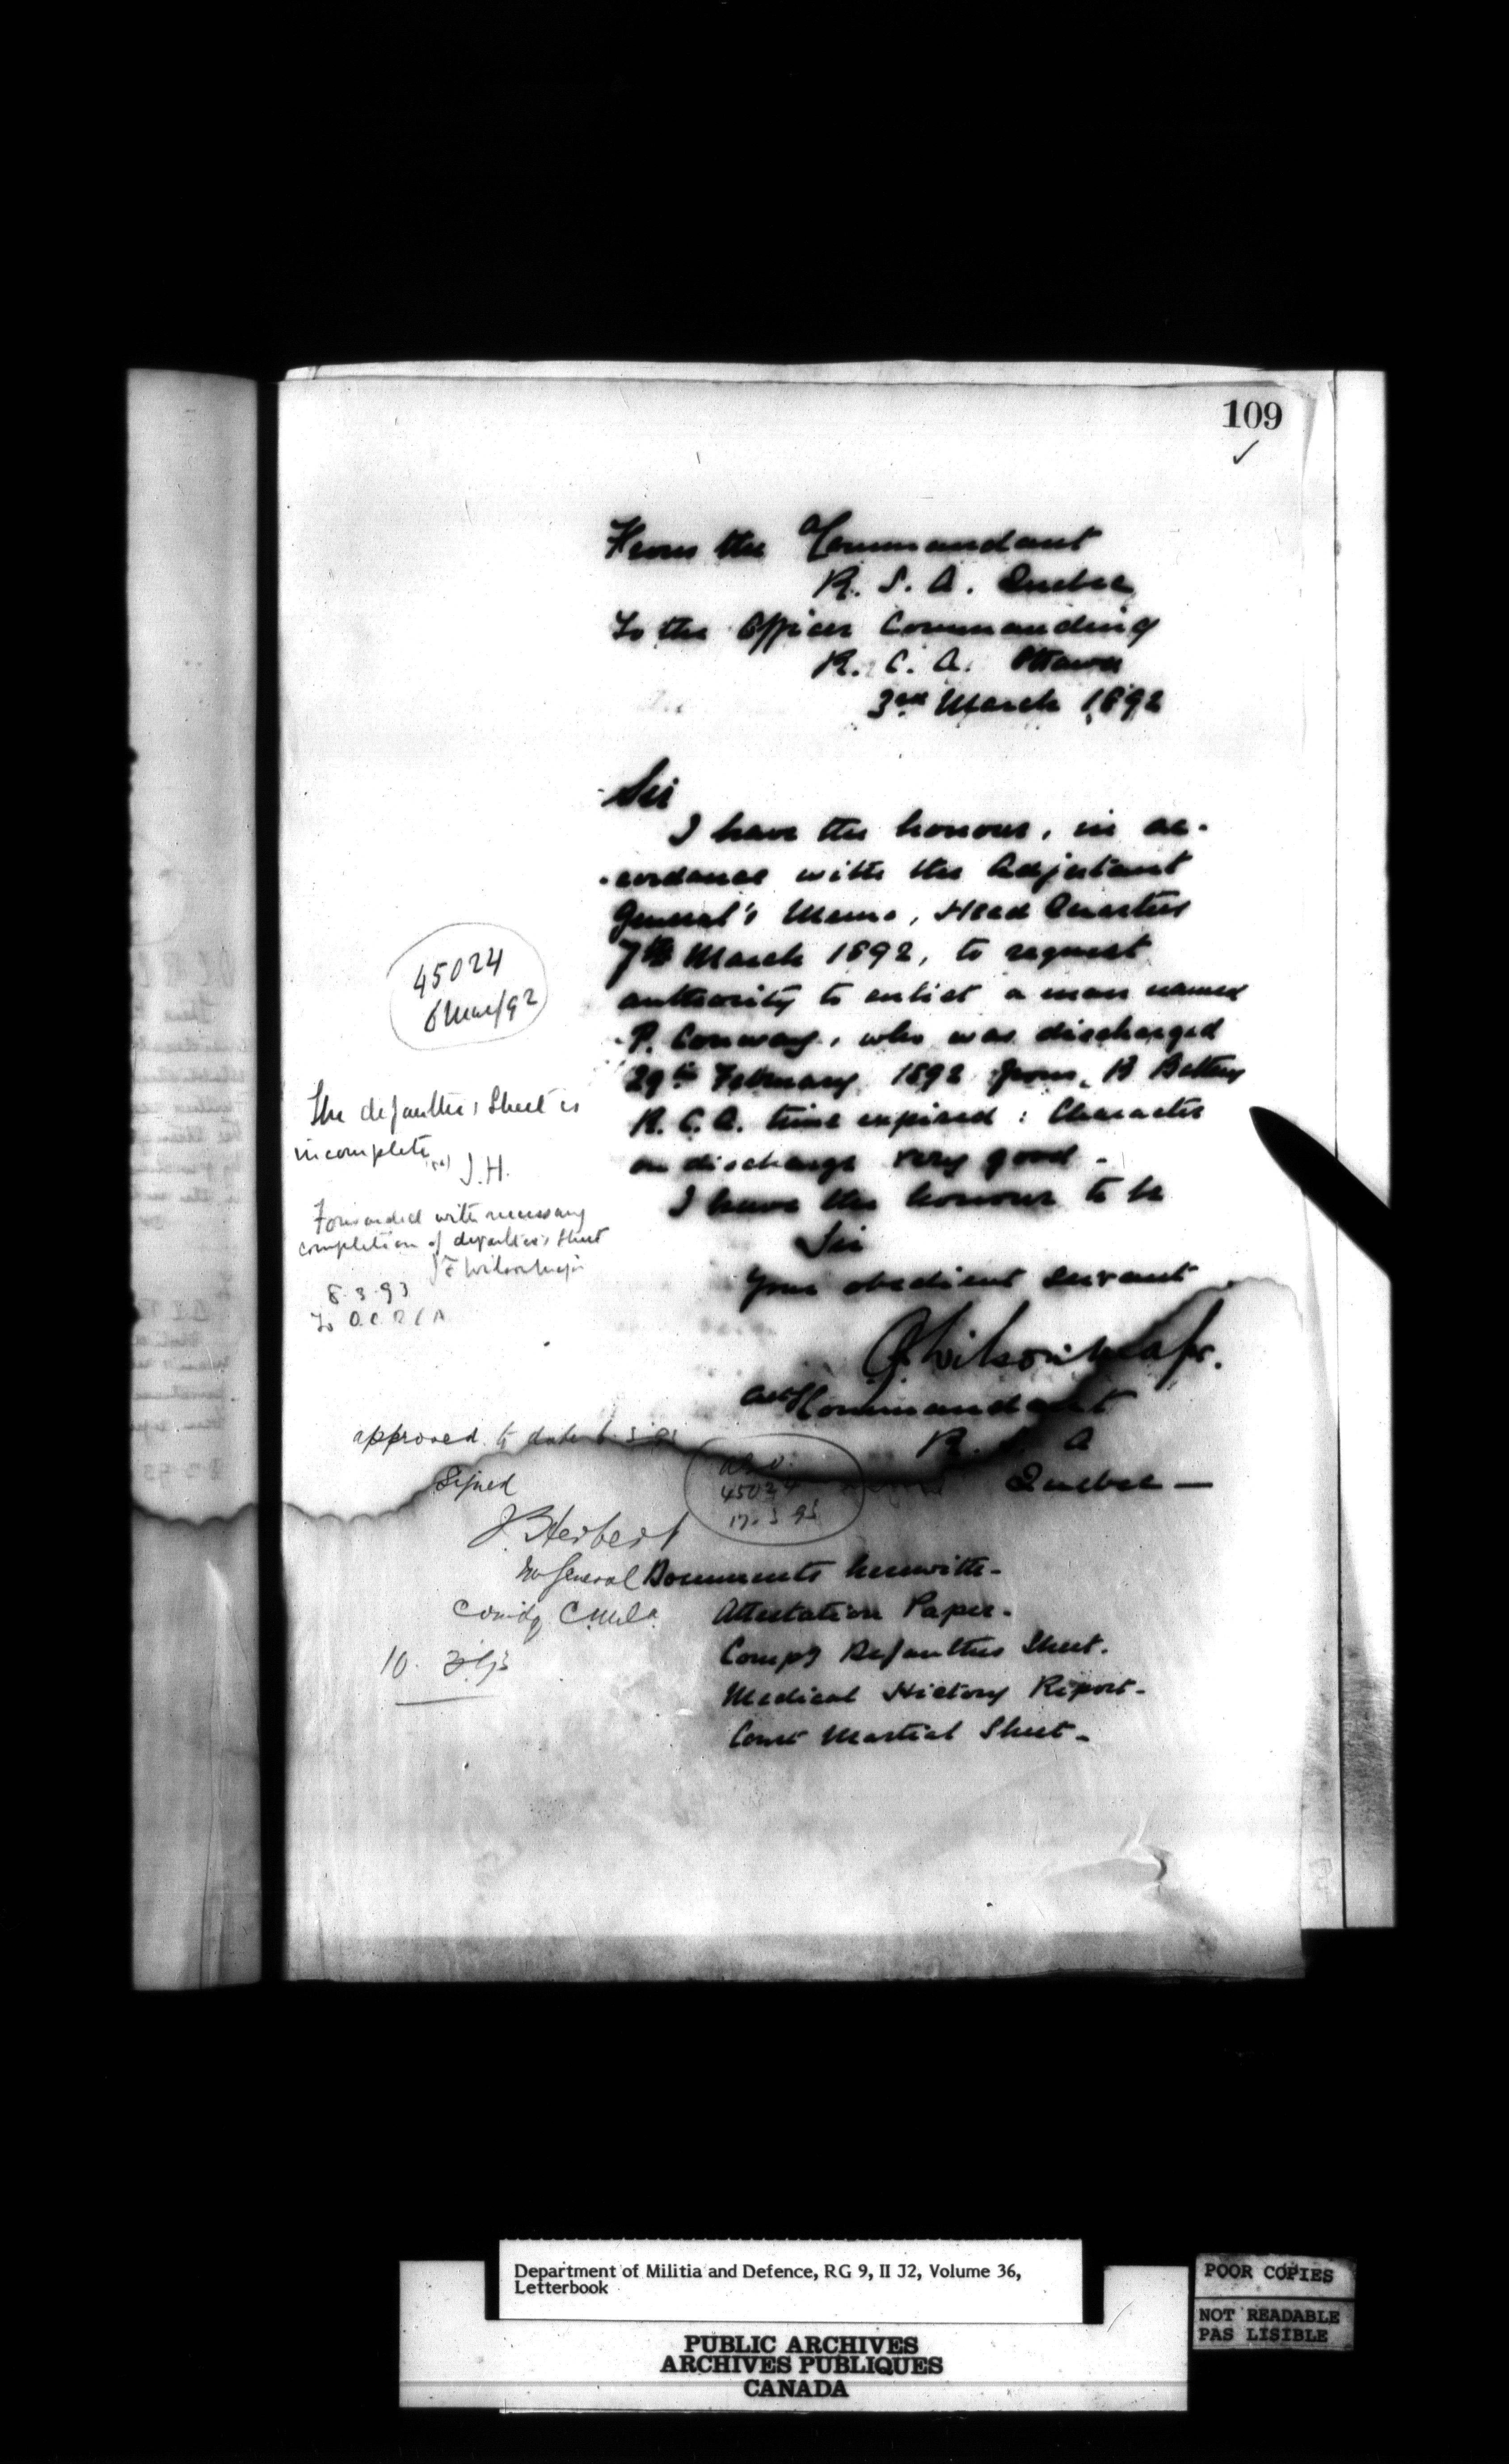 109
From the Commandant
R. S. A. Quebec
To the Officer Commanding
R. C. A. Ottawa
3rd March 1892
Sir
I have the honour, in ac-
-cordance with the Adjutant
General's Memo, Head Quarters
7th March 1892, to request
authority to enlist a man named
P. Conway, who was discharged
29th February 1892 from B Battery
R. C. A. time expired: Character
on discharge very good.
I have the honour to be
Sir
Your obedient servant
Wilson Major.
Commandant
R. S. A
Quebec —
Documents herewith-
Attestation Paper.
Compy Defaulters Sheet.
Medical History Report-
Court Martial Sheet-
45024
6 Mar/92
The defaulters Sheet is
incomplete
J.H.
Forwarded with necessary
completion of defaulters sheet
Wilson Major
8.3.93
To O.C. RCA
approved to date
Signed
Herbert
General
10. 3.93
45024
17.3.93
Department of Militia and Defence, RG 9, II J2, Volume 36,
Letterbook
PUBLIC ARCHIVES
ARCHIVES PUBLIQUES
CANADA
POOR COPIES
NOT READABLE
PAS LISIBLE